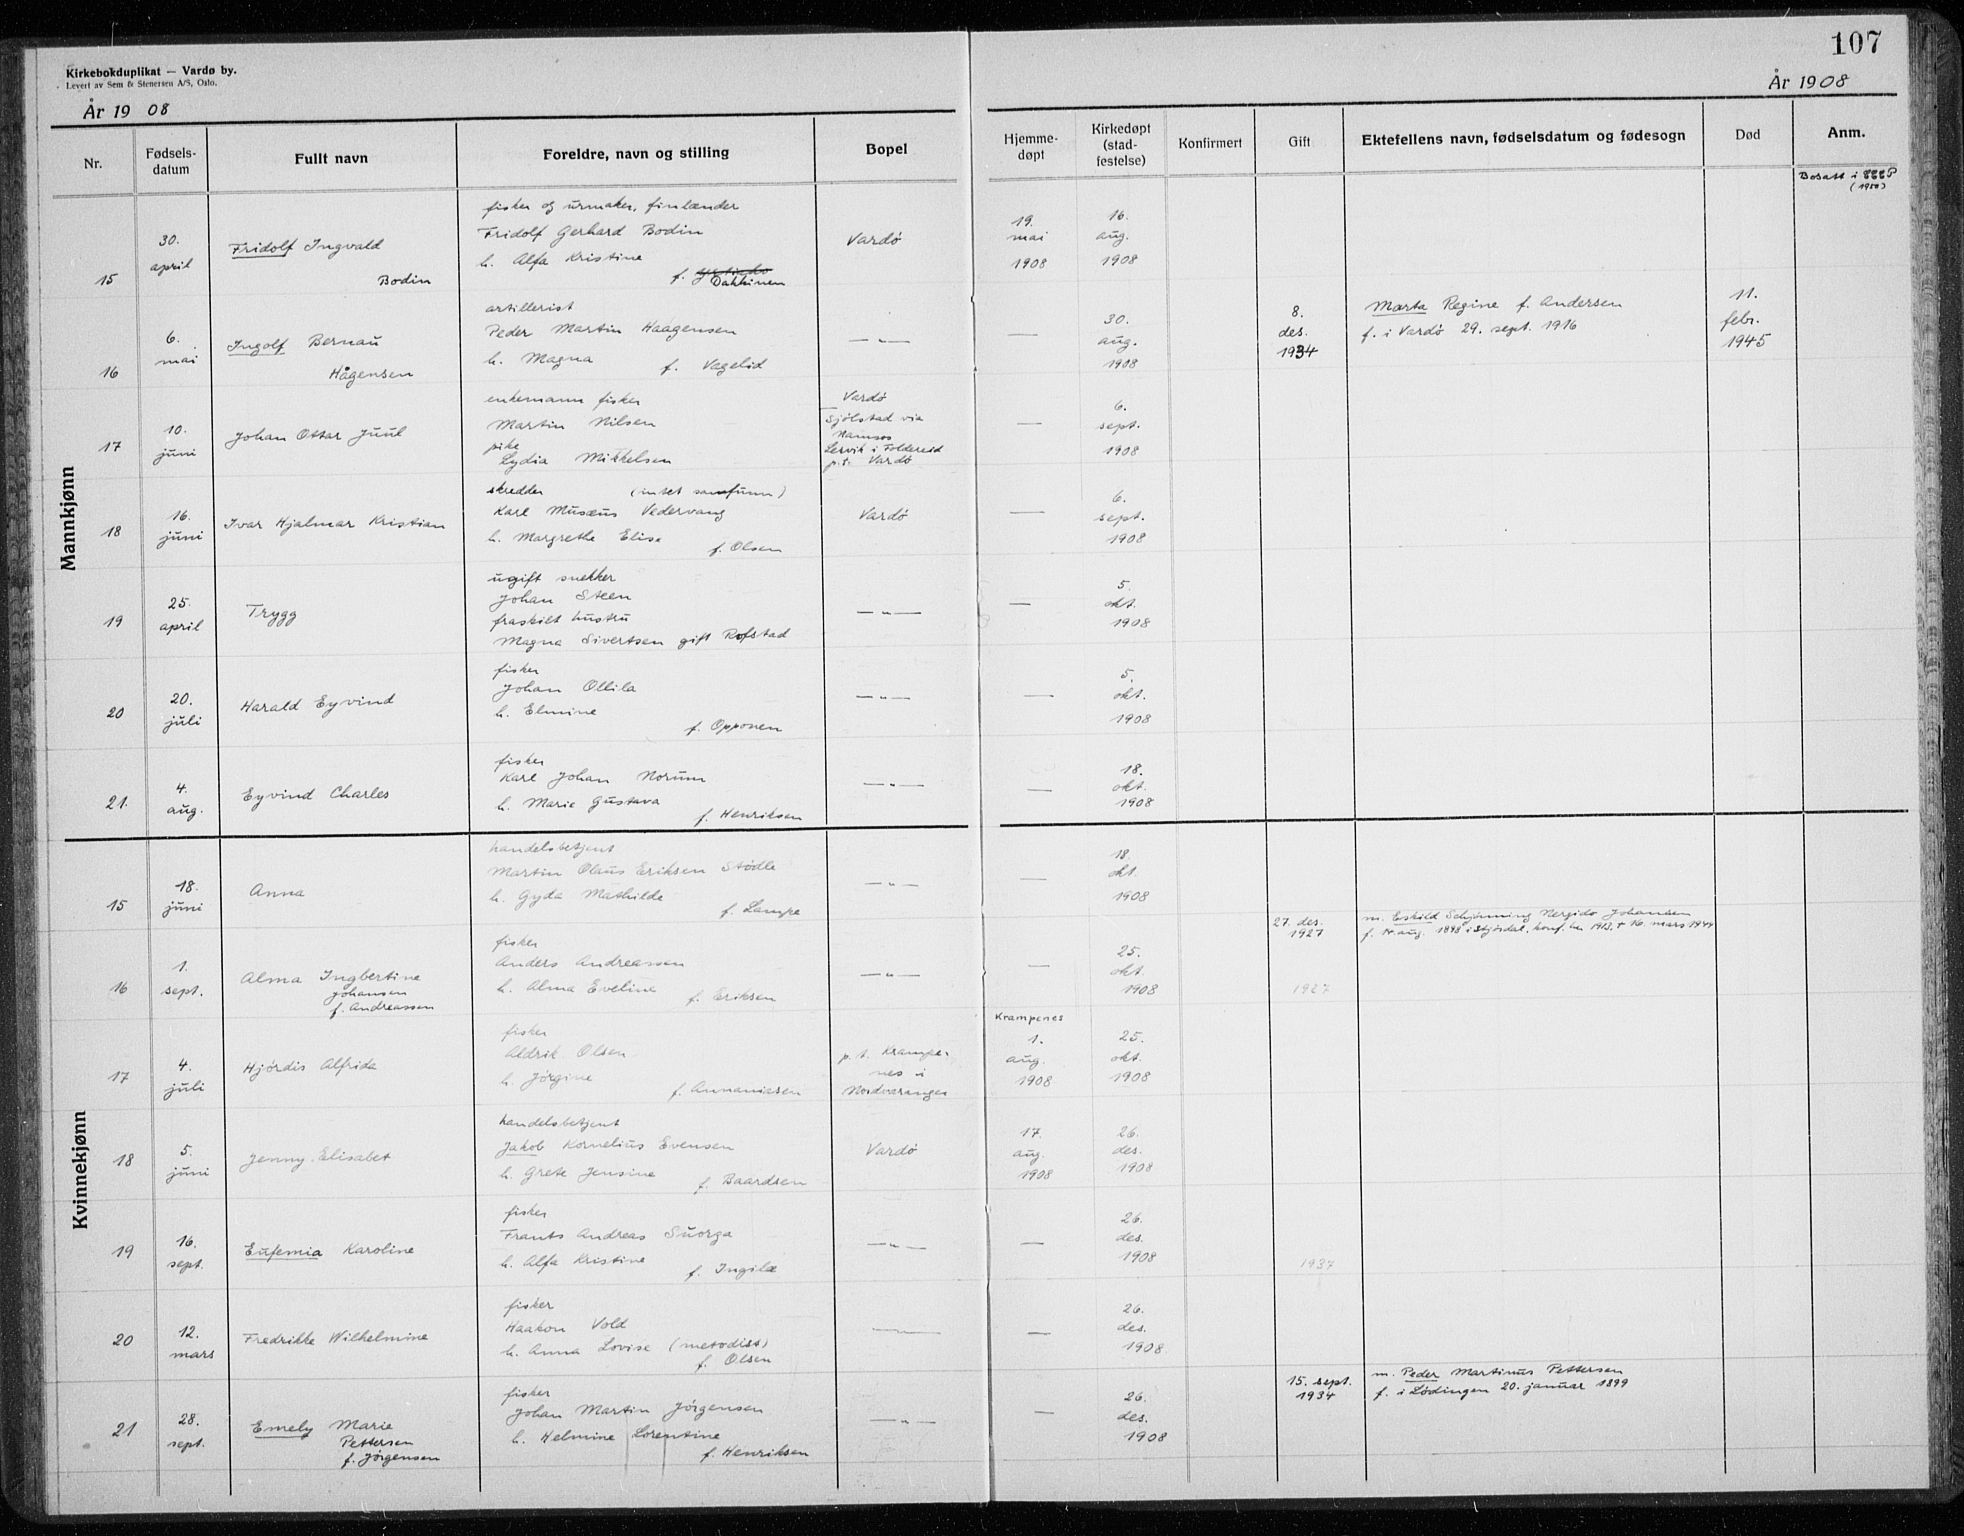 107
Kirkebokduplikat — Vardø by.
Levert av Sem & Stenersen A/S, Oslo.
År 1908
År 1908
Nr. Fødsels-datum Fullt navn Foreldre, navn og stilling Bopel Hjemme-døpt Kirkedøpt (stad-festelse) Konfirmert Gift Ektefellens navn, fødselsdatum og fødesogn Død Anm.
Mannkjønn
Bosatt i
(1950)
fisker og urmaker, finlænder
15 30. april Fridolf Ingvald Bodin
Fridolf Gerhard Bodin
h. Alfa Kristine
f. Dakkinen
Vardø
19. mai 1908
16. aug. 1908
artillerist
16 6. mai Ingolf Bernau Hågensen
Peder Martin Haagensen
h. Magna f. Vagelid
— " —
—
30. aug. 1908
8. des. 1934
Marta Regine f. Andersen
f. i Vardø 29. sept. 1916
11. febr. 1945
enkemann fisker
17 10. juni Johan Ottar Juul
Martin Nilsen
pike
Lydia Mikkelsen
Vardø
Sjølstad via
Namsos
Lervik i Foldereid
p.t. Vardø
—
6. sept. 1908
skredder (intet samfunn)
18 16. juni Ivar Hjalmar Kristian
Karl Musæus Vedervang
h. Margrethe Elise f. Olsen
Vardø
—
6. sept. 1908
ugift snekker
19 25. april Trygg
Johan Steen
fraskilt hustru
Magna Sivertsen gift Rofstad
— " —
—
5. okt. 1908
fisker
20 20. juli Harald Eyvind
Johan Ollila
h. Elmine
f. Opponen
— " —
—
5. okt. 1908
fisker
21. 4. aug. Eyvind Charles
Karl Johan Norum
h. Marie Gustava
f. Henriksen
— " —
—
18. okt. 1908
Kvinnekjønn
handelsbetjent
15 18. juni Anna
Martin Olaus Eriksen Stødle
h. Gyda Mathilde
f. Lampe
— " —
—
18. okt. 1908
fisker
16 1. sept. Alma Ingbertine
Johansen
f. Andreassen
Anders Andreassen
h. Alma Eveline f. Eriksen
— " —
—
25. okt. 1908
27. des. 1927
1927
m. Eskild Schjønning Nergido Johansen
f. 14. aug. 1898 i Stjørdal, konf. her 1913, + 16. mars 1944
fisker
17 4. juli Hjørdis Alfrida
Aldrik Olsen
h. Jørgine
f. Annaniasen
p.t. Krampe-
nes i
Nordvaranger
Krampenes
1. aug. 1908
25. okt 1908
handelsbetjent
18 5. juni Jenny Elisabet
Jakob Kornelius Evensen
h. Grete Jensine
f. Baardsen
Vardø
17. aug. 1908
26. des. 1908
fisker
19 16. sept. Eufemia Karoline
Frants Andreas Suorga
h. Alfa Kristine
f. Ingilæ
— " —
—
26. des. 1908
1937
fisker
20 12. mars Fredrikke Wilhelmine
Haakon Vold
h. Anna Lovise (metodist)
f. Olsen
— " —
—
26. des. 1908
fisker
21 28. sept. Emely Marie
Pettersen
f. Jørgensen
Johan Martin Jørgensen
h. Helmine Lorentine
f. Henriksen
— " —
—
26. des. 1908
15. sept. 1934
m. Peder Martinus Pettersen
f. i Lødingen 20. januar 1899